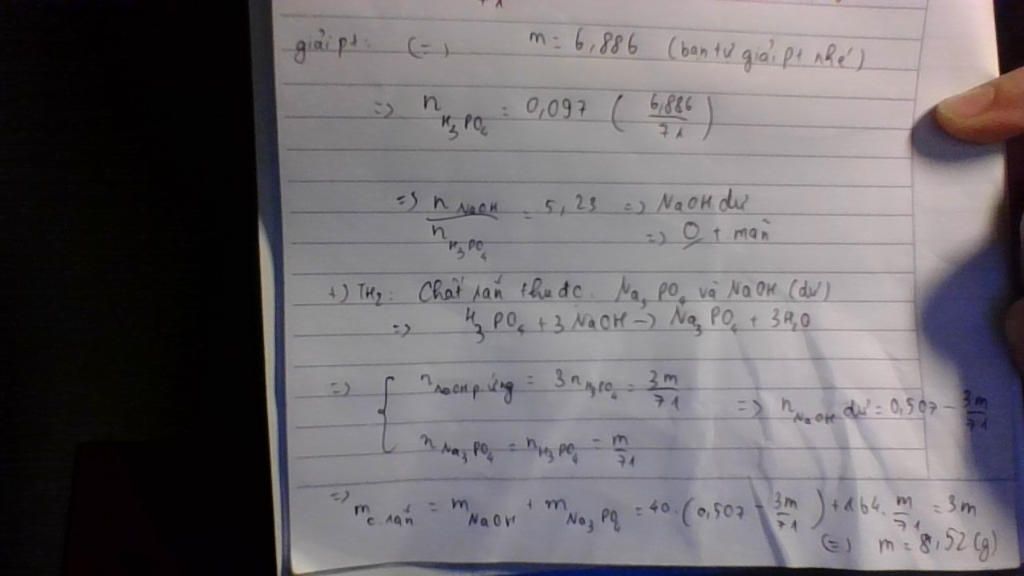 giải pt: (=) m = 6,886 (bạn tự giải pt nhé)
=> n H₃PO₄ = 0,097 ( 6,886 / 71 )
=> n NaOH / n H₃PO₄ = 5,23 => NaOH dư
=> 0 t mãn
+) TH₂: Chất rắn thu đc: Na₃PO₄ và NaOH (dư)
=> H₃PO₄ + 3NaOH -> Na₃PO₄ + 3H₂O
=> { n NaOH p ứng = 3n H₃PO₄ = 3m/71
n Na₃PO₄ = n H₃PO₄ = m/71
=> n NaOH dư = 0,507 - 3m/71
=> m c.rắn = m NaOH + m Na₃PO₄ = 40.(0,507 - 3m/71) + 164. m/71 = 3m
(=) m = 8,52 (g)